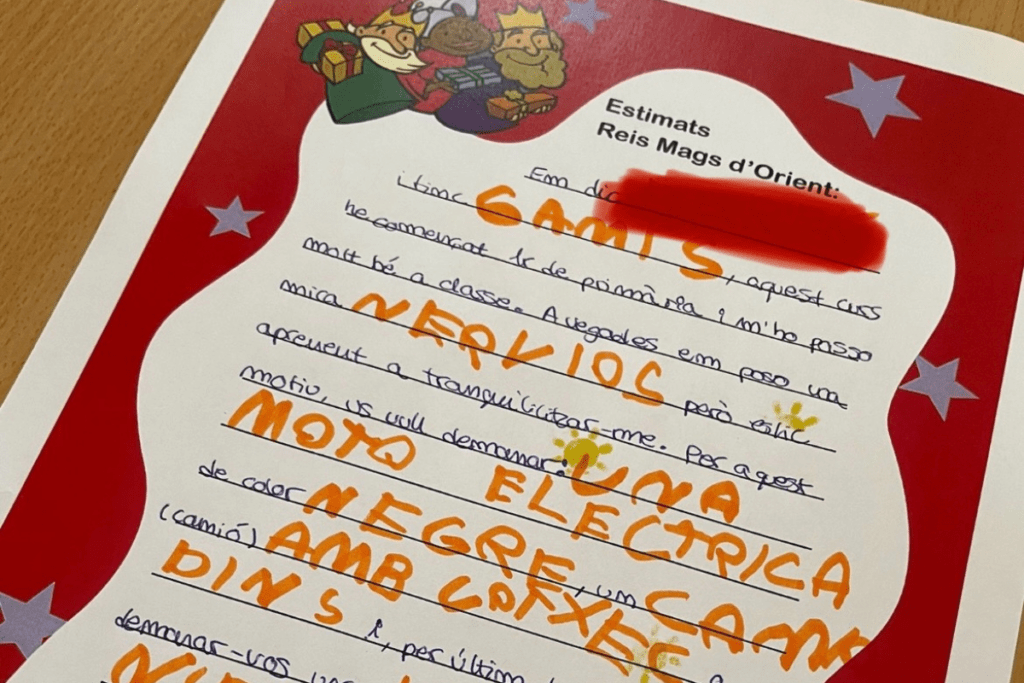 Estimats
Reis Mags d'Orient:
Em dic
i tinc 6 ANYS, aquest curs
he començat 1r de primària i m'ho passo
molt bé a classe. A vegades em poso una
mica NERVIOS però estic
aprenent a tranquilitzar-me. Per aquest
motiu, us vull demanar: UNA
MOTO ELECTRICA
de color NEGRE, un CAMM
(camió) AMB COTXES
DINS i, per últim
demanar-vos